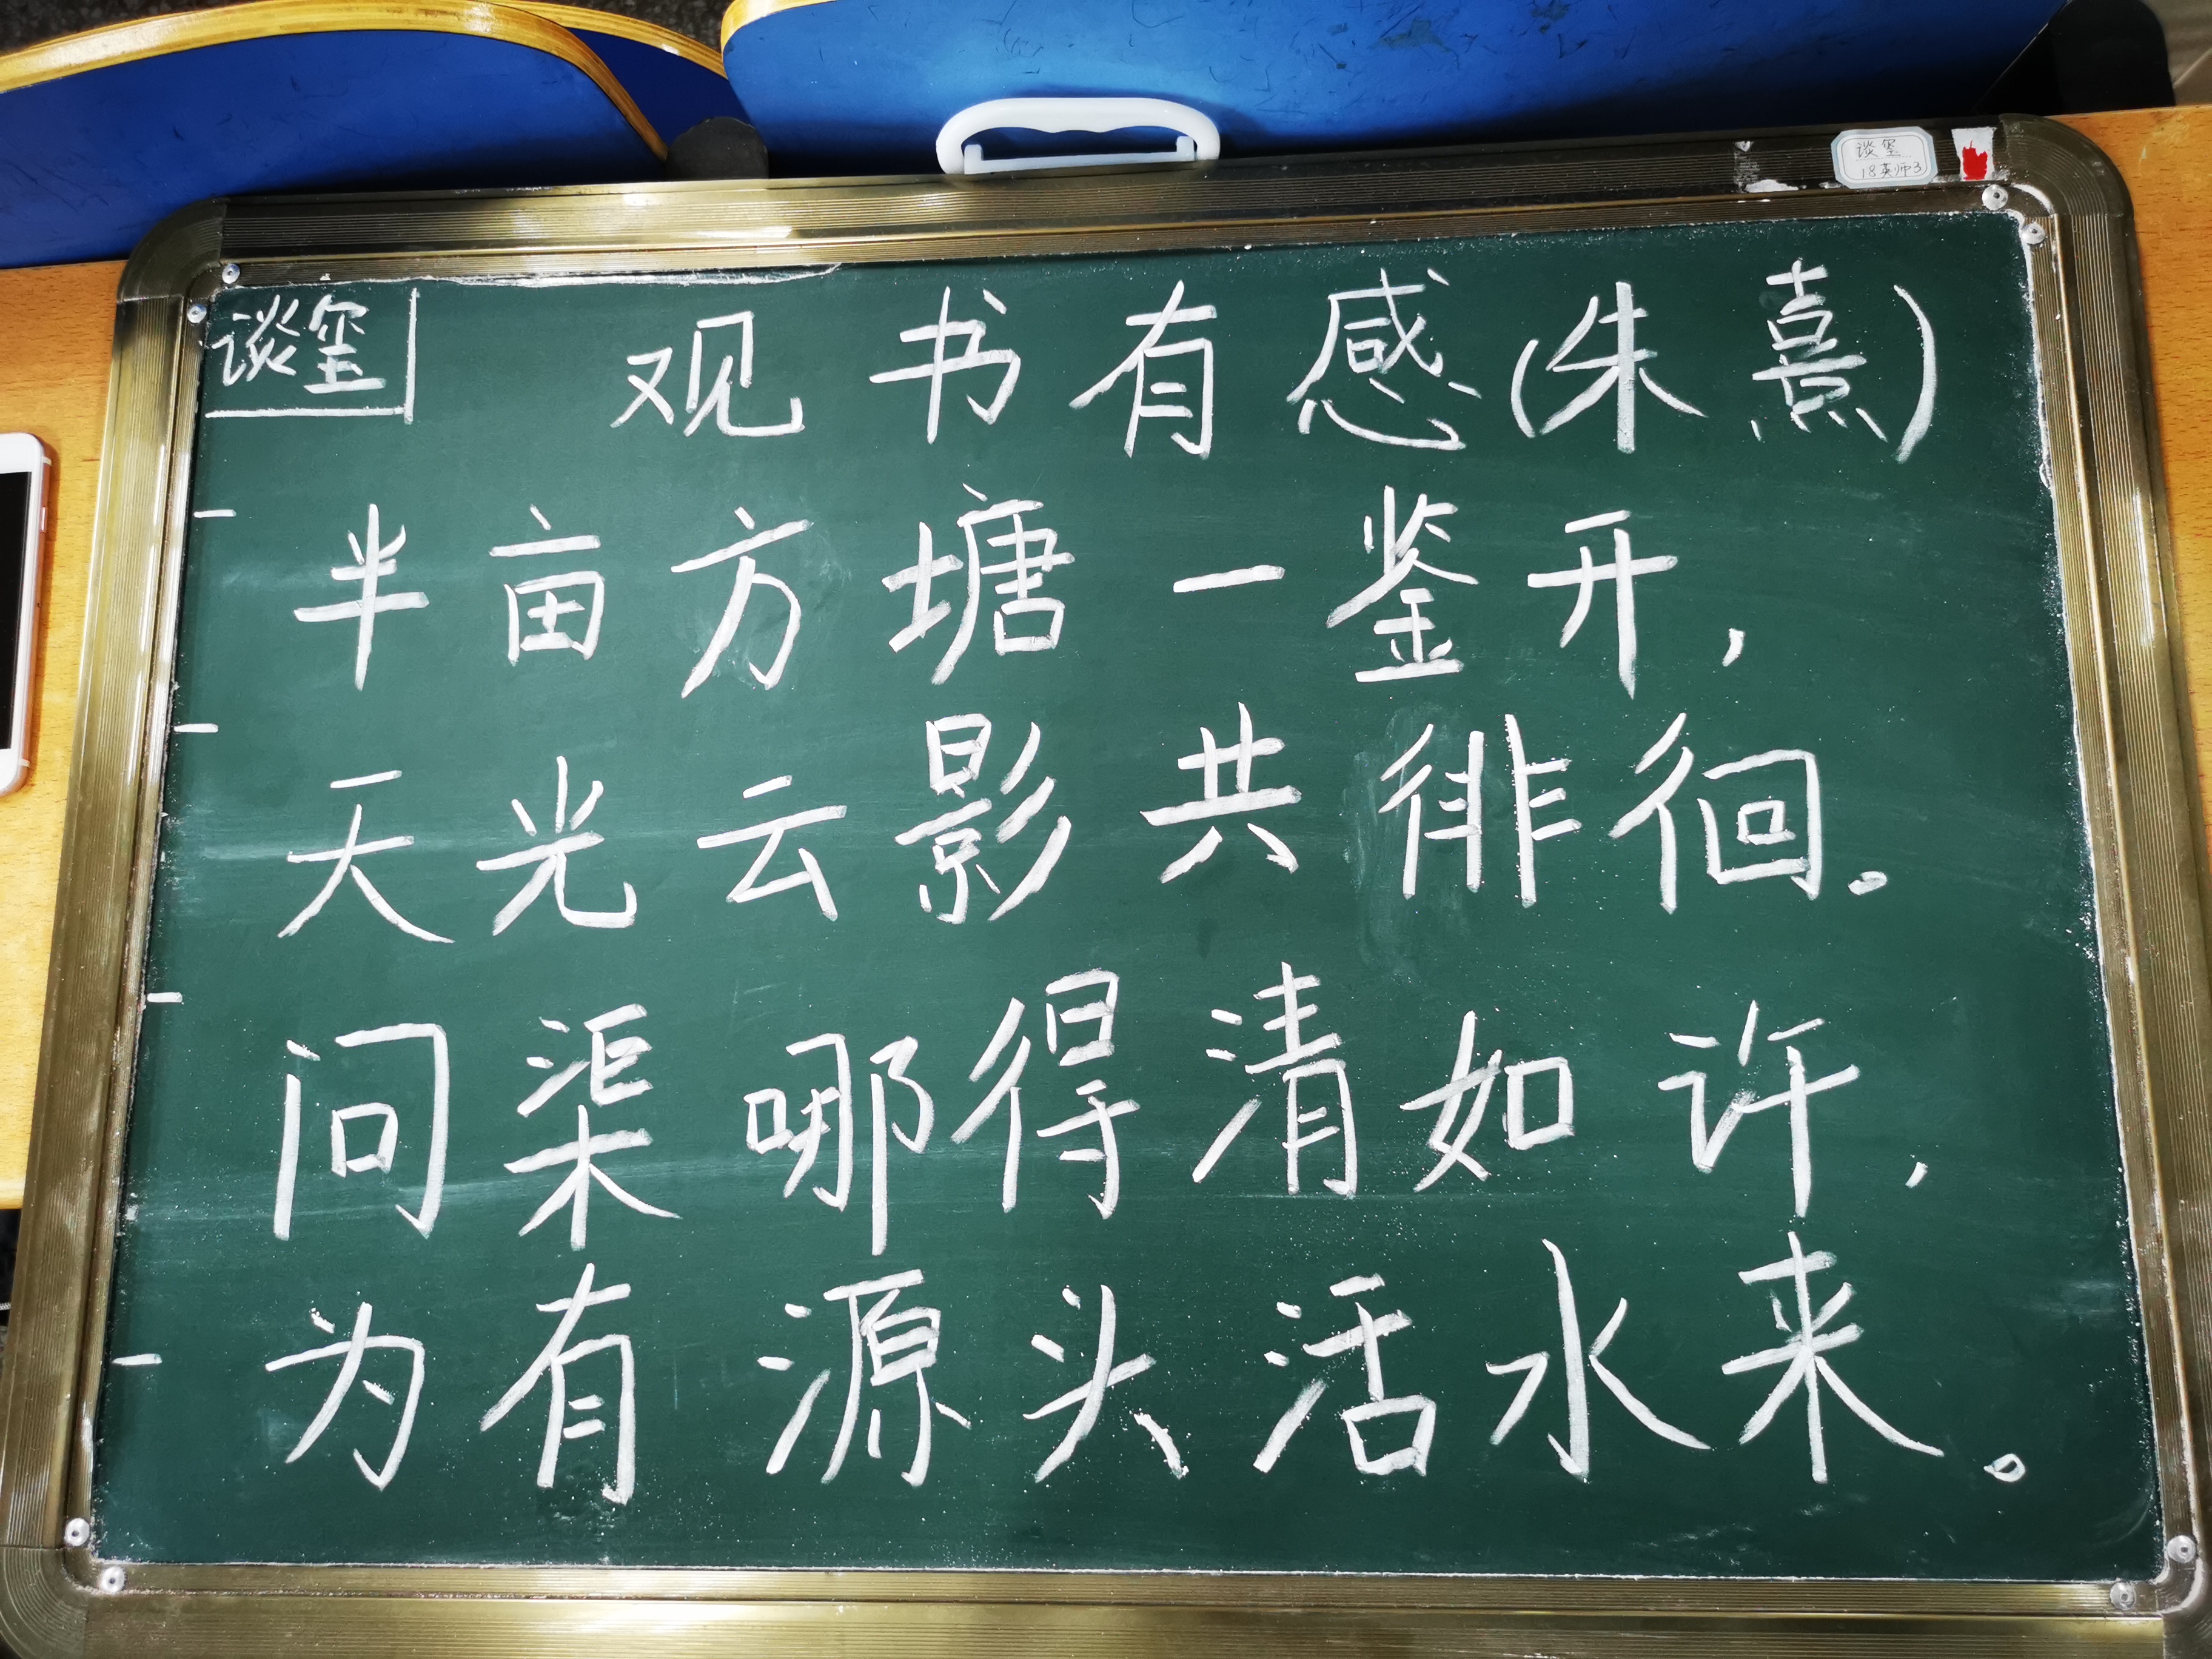 谈玺
18英师3
谈玺
观书有感(朱熹)
半亩方塘一鉴开,
天光云影共徘徊。
问渠哪得清如许,
为有源头活水来。